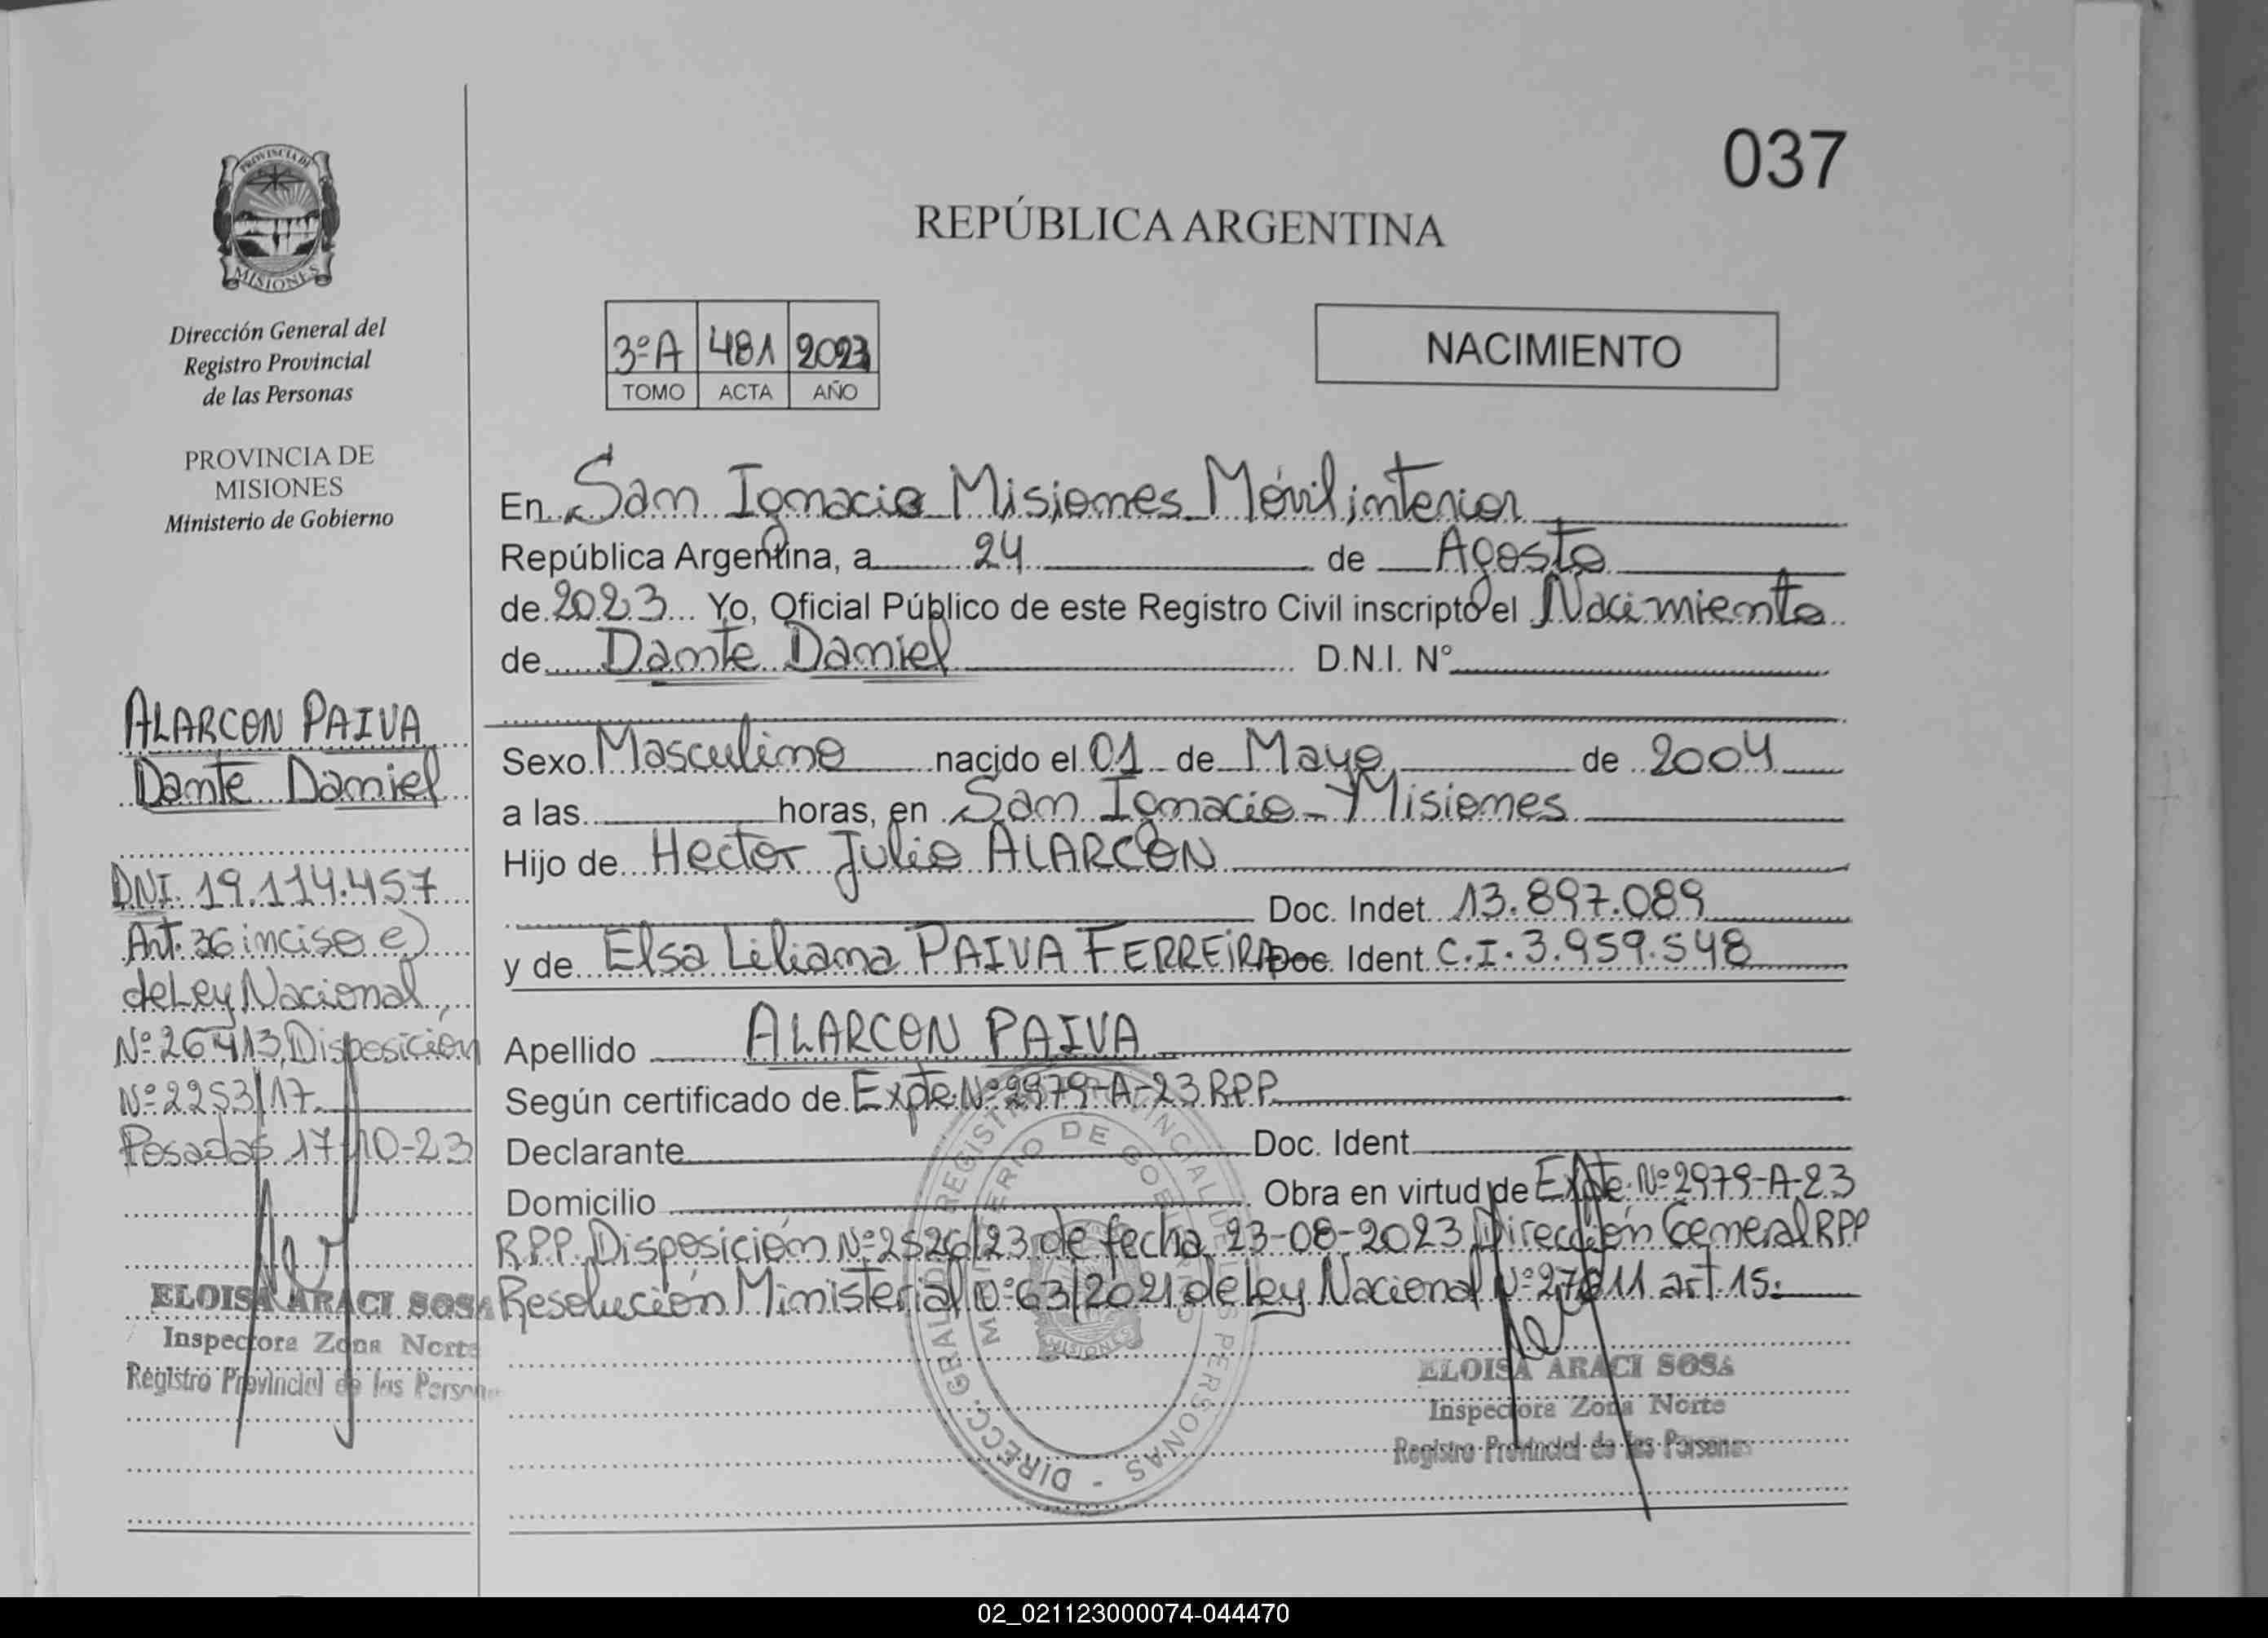 037
REPÚBLICA ARGENTINA
PROVINCIA DE
MISIONES
Dirección General del
Registro Provincial
de las Personas
PROVINCIA DE
MISIONES
Ministerio de Gobierno
3ºA 481 2023
TOMO ACTA AÑO
NACIMIENTO
En San Ignacio Misiones Móvil interior
República Argentina, a 24 de Agosto
de 2023 Yo, Oficial Público de este Registro Civil inscripto el Nacimiento
de Dante Daniel D.N.I. Nº
Sexo Masculino nacido el 01 de Mayo de 2004
a las horas, en San Ignacio - Misiones
Hijo de Hector Julio ALARCON
Doc. Indet. 13.897.089
y de Elsa Liliana PAIVA FERREIRA Doc. Ident. C.I. 3.959.548
Apellido ALARCON PAIVA
Según certificado de Expte Nº 2979-A-23 RPP
Declarante Doc. Ident.
Domicilio Obra en virtud de Expte Nº 2979-A-23
R.P.P. Disposición Nº 2526/23 de fecha 23-08-2023 Dirección General RPP
Resolución Ministerial Nº 63/2021 de Ley Nacional Nº 27611 art 15.
ALARCON PAIVA
Dante Daniel
DNI. 19.114.457
Art. 36 inciso e)
de Ley Nacional,
Nº 26413, Disposición
Nº 2253/17
Posadas 17-10-23
ELOISA ARACI SOSA
Inspectora Zona Norte
Registro Provincial de las Persona
ELOISA ARACI SOSA
Inspectora Zona Norte
Registro Provincial de las Personas
DIRECC. GRAL. DE REGISTRO PROVINCIAL DE LAS PERSONAS -
MINISTERIO DE GOBIERNO
MISIONES
02_021123000074-044470